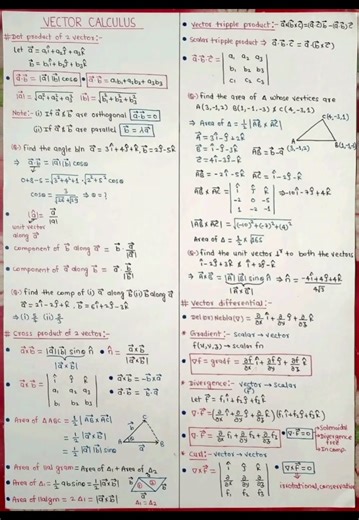 VECTOR CALCULUS
# Dot product of 2 vector:-
Let a⃗ = a₁î + a₂ĵ + a₃k̂
b⃗ = b₁î + b₂ĵ + b₃k̂
• a⃗·b⃗ = |a⃗||b⃗|cosθ • a⃗·b⃗ = a₁b₁+a₂b₂+a₃b₃
|a⃗| = √a₁²+a₂²+a₃² |b⃗| = √b₁²+b₂²+b₃²
Note:- (i) If a⃗ & b⃗ are orthogonal a⃗·b⃗=0
(ii) If a⃗ & b⃗ are parallel b⃗ = λa⃗
Q:) find the angle b/n
⇒ a⃗·b⃗ = |a⃗||b⃗|cosθ
cosθ = ⇒ θ = ?
• (â) = a⃗/|a⃗|
unit vector along a⃗
• component of b⃗ along a⃗ = b⃗·a⃗/|a⃗|
• component of a⃗ along b⃗ = a⃗·b⃗/|b⃗|
Q:) find the comp of (i) a⃗ along b⃗ (ii) b⃗ along a⃗
# Cross product of 2 vector:-
• a⃗×b⃗ = |a⃗||b⃗| sinθ n̂ • n̂ = a⃗×b⃗/|a⃗×b⃗|
• a⃗×b⃗ = | î ĵ k̂ |
| a₁ a₂ a₃ |
| b₁ b₂ b₃ |
• a⃗×b⃗ = -b⃗×a⃗
• a⃗·b⃗ = b⃗·a⃗
• Area of ΔABC = 1/2 |AB⃗×AC⃗|
= 1/2 |a⃗×b⃗|
= 1/2 |a⃗||b⃗| sinθ
A B C
• Area of llal gram = Area of Δ₁ + Area of Δ₂
• Area of Δ₁ = 1/2 ab sinθ = 1/2|a⃗×b⃗|
• Area of llalgram = 2Δ₁ = |a⃗×b⃗|
Δ₁=Δ₂
• Vector tripple product:- a⃗×(b⃗×c⃗) = (a⃗·c⃗)b⃗ - (a⃗·b⃗)c⃗
• Scalar tripple product ⇒ a⃗·b⃗·c⃗ = a⃗·(b⃗×c⃗)
• a⃗·b⃗·c⃗ = | a₁ a₂ a₃ |
| b₁ b₂ b₃ |
| c₁ c₂ c₃ |
Q:) find the area of Δ whose vertices are
A(3,-1,2) B(1,-1,-3) & C(4,-3,1)
⇒ Area of Δ = 1/2 |AB⃗×AC⃗|
A⃗ = 3î-ĵ+2k̂
B⃗ = î-ĵ-3k̂ AB⃗ = b⃗-a⃗
C⃗ = 4î-3ĵ+k̂
AB⃗ = -2î-5k̂ AC⃗ = î-2ĵ-k̂
AB⃗×AC⃗ = | î ĵ k̂ | ⇒ -10î-7ĵ+4k̂
| -2 0 -5 |
| 1 -2 -1 |
|AB⃗×AC⃗| = √(-10)²+(-7)²+(4)²
Area of Δ = 1/2 √165
Q:) find the unit vector ⊥ʳ to both the vectors
⇒ a⃗×b⃗ = |a⃗||b⃗| sinθ n̂ ⇒ n̂ =
|a⃗×b⃗|
# Vector differential:-
• Del (or) Nebla(∇) = ∂/∂x î + ∂/∂y ĵ + ∂/∂z k̂
• Gradient:- scalar → vector
f(x,y,z) → scalar fn
∇f = gradf = ∂f/∂x î + ∂f/∂y ĵ + ∂f/∂z k̂
• Divergence:- vector → scalar
Let F⃗ = f₁î+f₂ĵ+f₃k̂
∇·F⃗ = (∂/∂x î + ∂/∂y ĵ + ∂/∂z k̂)(f₁î+f₂ĵ+f₃k̂)
∇·F⃗ = ∂/∂x f₁ + ∂/∂y f₂ + ∂/∂z f₃ • ∇·F⃗=0
• Solenoidal
• Divergence free
• Incomp.
• Curl:- vector → vector
∇×F⃗ = | î ĵ k̂ |
| ∂/∂x ∂/∂y ∂/∂z |
| f₁ f₂ f₃ |
• ∇×F⃗=0
irrotational, conservative